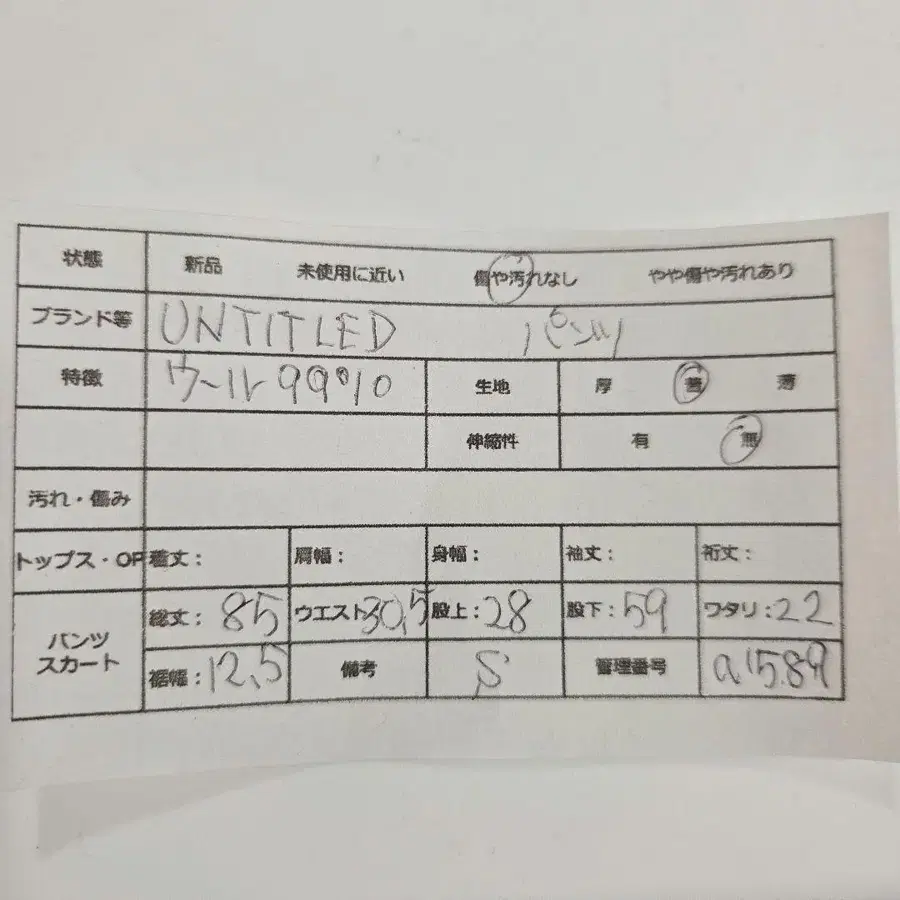 状態 新品 未使用に近い 傷や汚れなし やや傷や汚れあり
ブランド等 UNTITLED パンツ
特徴 ウール99%10 生地 厚 普 薄
伸縮性 有 無
汚れ・傷み
トップス・OP 着丈: 肩幅: 身幅: 袖丈: 裄丈:
パンツ スカート 総丈: 85 ウエスト30.5 股上:28 股下:59 ワタリ:22
裾幅:12.5 備考 S 管理番号 a1589